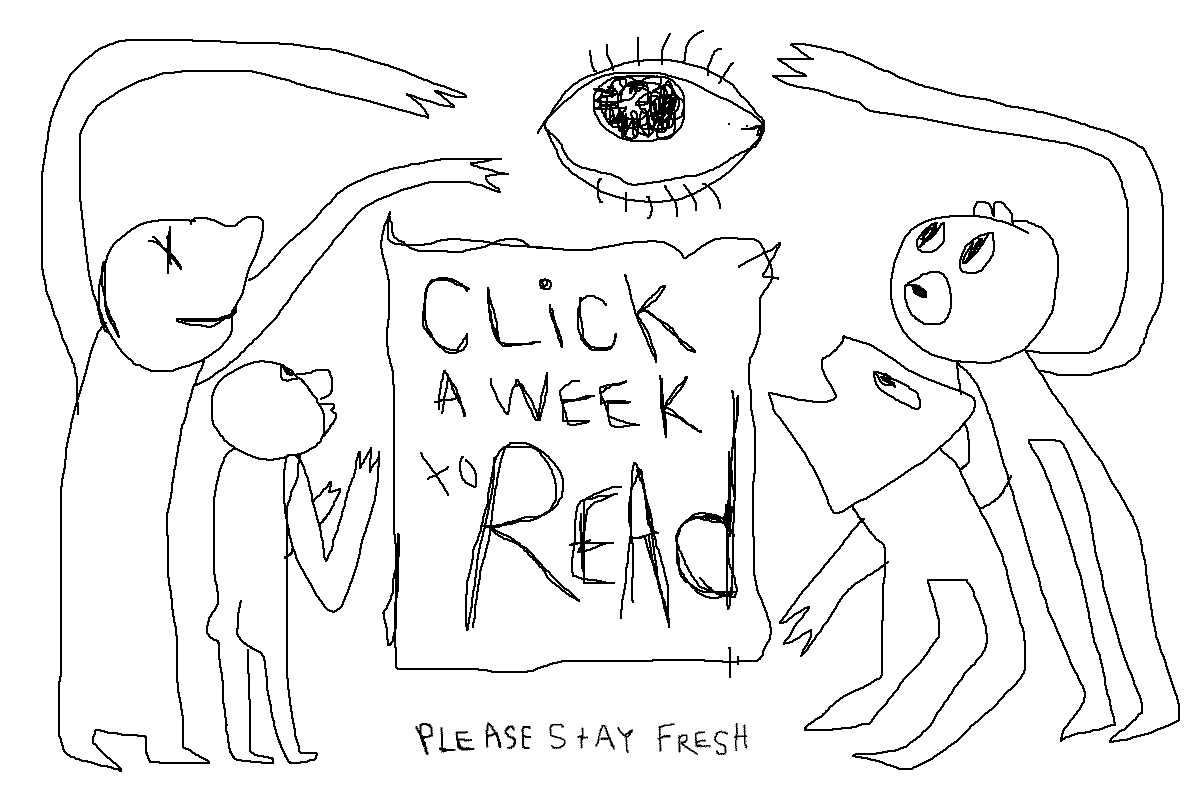 CLiCK
A WEEK
to
REAd
PLEASE StAY FRESH